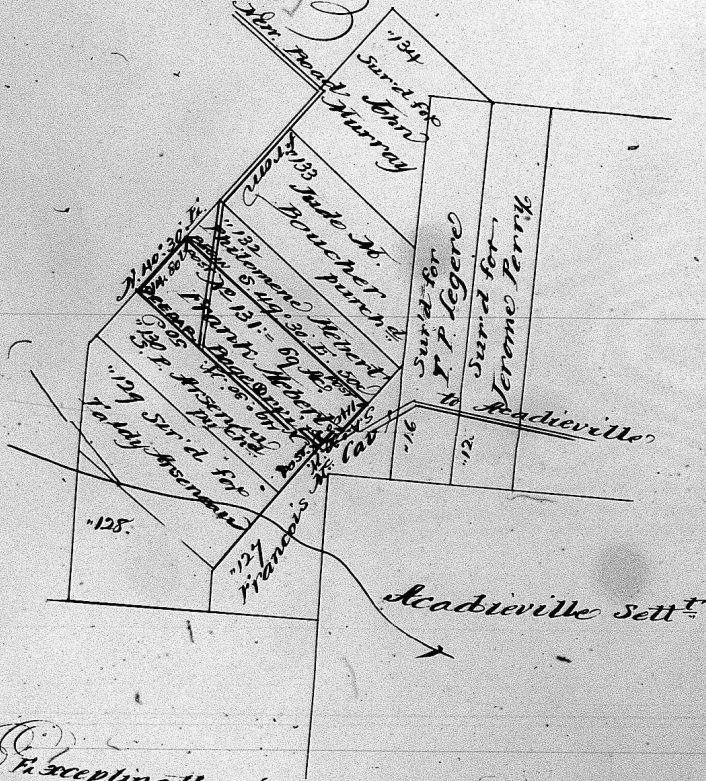 New Road
"134
Sur'd for
John
Murray
From
"133
Jude M.
Boucher
purchd
"132
Philomene Hebert
S. 49° 30' E.
No 131 = 69 Acs
Frank Hebert
N. 40° 30' E.
CEDAR
"130
S. P. Arsenau
purchd
"129 Sur'd for
Taddy Arsenau
"128.
"127
Francois M. Cav
Sur'd for
T. P. Legere
Sur'd for
Jerome Perry
to Acadieville
"16
"12.
Acadieville Settt
Excepting